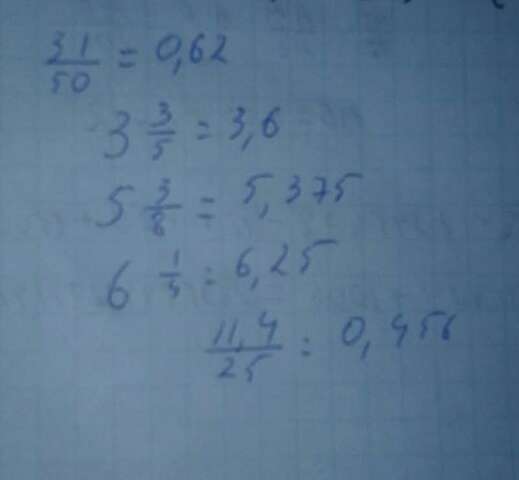 31/50 = 0,62
3 3/5 = 3,6
5 3/8 = 5,375
6 1/4 = 6,25
11,4/25 = 0,456